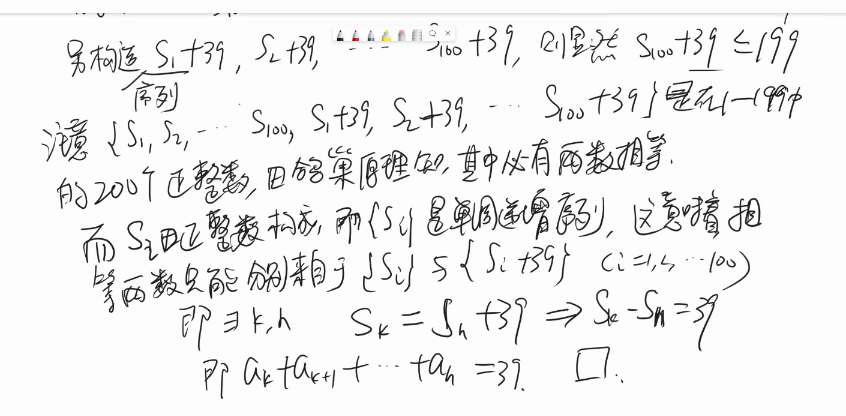 另构造 S₁+39, S₂+39, ... S₁₀₀+39, 则显然 S₁₀₀+39 ≤199
序列
注意 {S₁, S₂, ... S₁₀₀, S₁+39, S₂+39, ... S₁₀₀+39} 是在1—199中
的200个正整数, 由鸽巢原理知, 其中必有两数相等.
而 Sᵢ由正整数构成, 即{Sᵢ}是单调递增序列, 这意味着相
等两数只能分别来自于{Sᵢ}与{Sᵢ+39} (i=1,2,...100)
即∃k,n Sₖ=Sₙ+39 ⇒ Sₖ-Sₙ=39
即 aₖ+aₖ₊₁+...+aₙ=39. □.